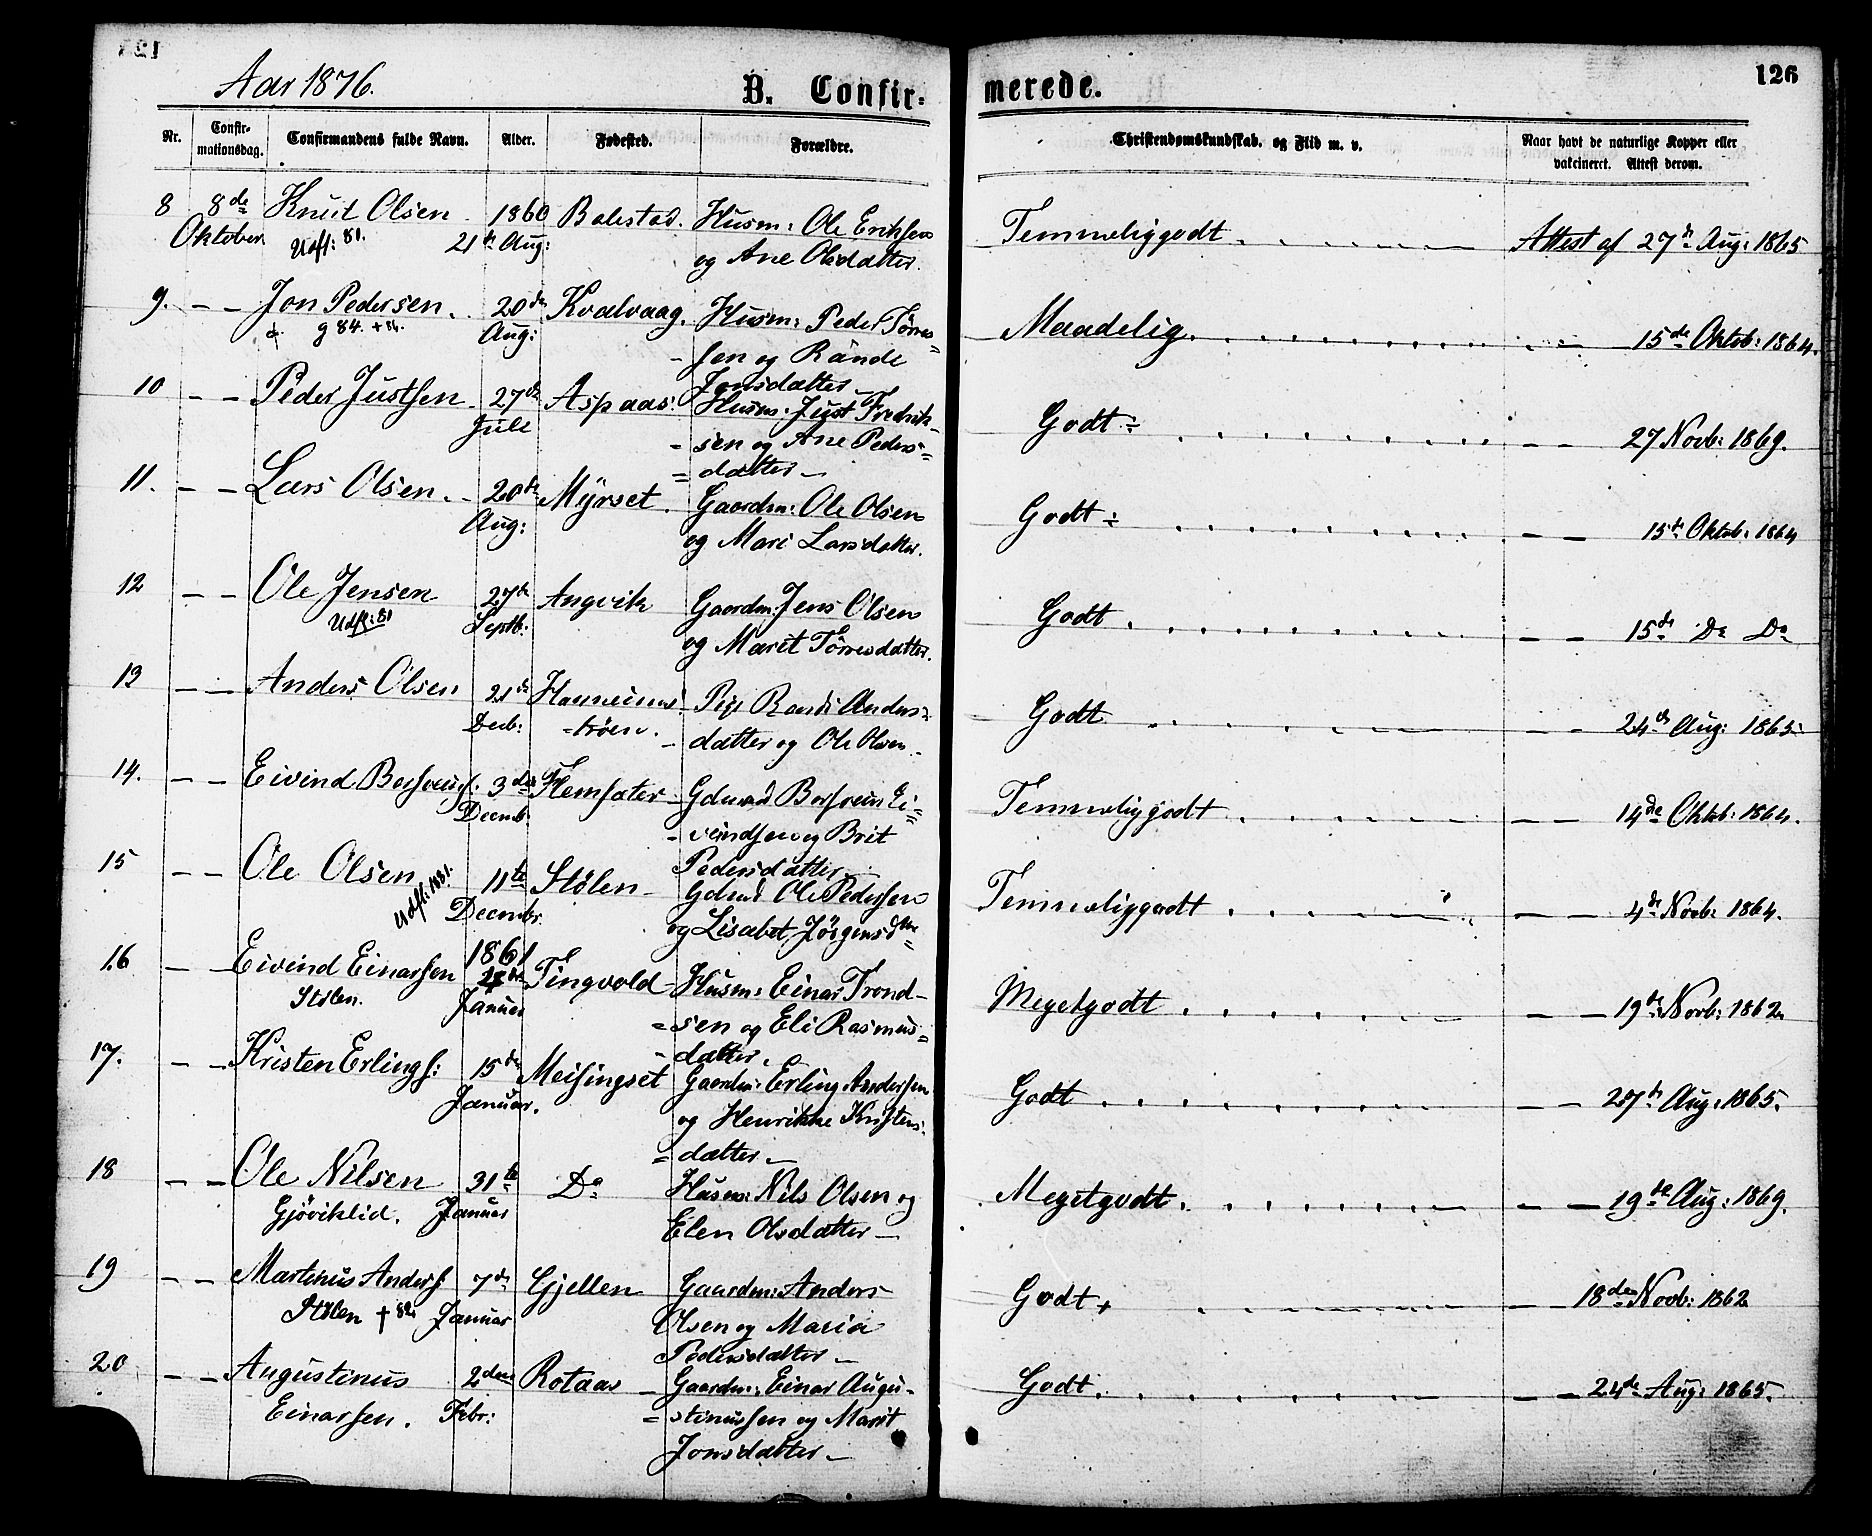 Aar 1876.
B. Confirmerede.
126
Nr. Confirmationsdag. Confirmandens fulde Navn. Alder. Fødested. Forældre. Christendomskundskab, og Flid m. v. Naar havt de naturlige Kopper eller vakcineret. Attest derom.
8 8de Knut Olsen 1860 Balestad. Husm: Ole Eriksen Temmeliggodt Attest af 27de Aug: 1865
Oktober Udfl: 81. 21de Aug: og Ane Olsdatter.
9. — — Jon Pedersen. 20de Kvalvaag. Husm: Peder Tørres= Maadelig — 15de Oktob: 1864.
g 84. Aug: sen og Rande
Jonsdatter
10 — — Peder Justsen 27de Aspaas. Husm: Just Fredrik- Godt ÷ — — 27 Novb: 1869.
Juli -sen og Ane Peders=
=datter —
11. — — Lars Olsen. 20de Myrset. Gaardm: Ole Olsen Godt ÷ — — 15de Oktob: 1864
Aug: og Mari Larsdatter.
12 — — Ole Jensen 27de Angvik Gaardm: Jens Olsen Godt — — 15de Do Do
Udfl: 81 Septb. og Marit Tørresdatter.
13 — — Anders Olsen 21de Pige Randi Anders= Godt — — 24de Aug: 1865
Decb: -trøen. datter og Ole Olsen
14. — — Eivind 3de Flemsæter Gdmd Ei= Temmeliggodt — — 14de Oktob: 1864.
Decemb. -vindsen og Brit
Pedersdatter
15 — — Ole Olsen 11te Stølen Gdmd Ole Pedersen Temmeliggodt — — 4de Novb: 1864.
Udfl: 1881. Decembr. og Lisabet Jørgensdtr
16 — — Eivind Einarsen 1861 Tingvold Husm: Einar Trond- Megetgodt — — 19de Novb: 1862
Stølen. Januar =sen og Eli Rasmus=
-datter.
17. — — Kristen Erlings: 15de Meisingset Gaardm: Erling Andersen Godt — — 27de Aug: 1865.
Januar. og Henrikke Kristens:
=datter —
18 — — Ole Nilsen 31te Do Husm: Nils Olsen og Megetgodt — — 19de Aug: 1869.
Gjøviklid. Januar Elen Olsdatter —
19 — — Martinus Anders: 7de Gjellen Gaardm: Anders Godt + — — 18de Novb: 1862
Stølen † 82 Januar Olsen og Maria
Pedersdatter —
20 — — Augustinus 2den Rotaas Gaardm: Einar Augu- Godt. — — 24de Aug: 1865.
Einarsen. Febr: =stinussen og Marit
Jonsdatter —